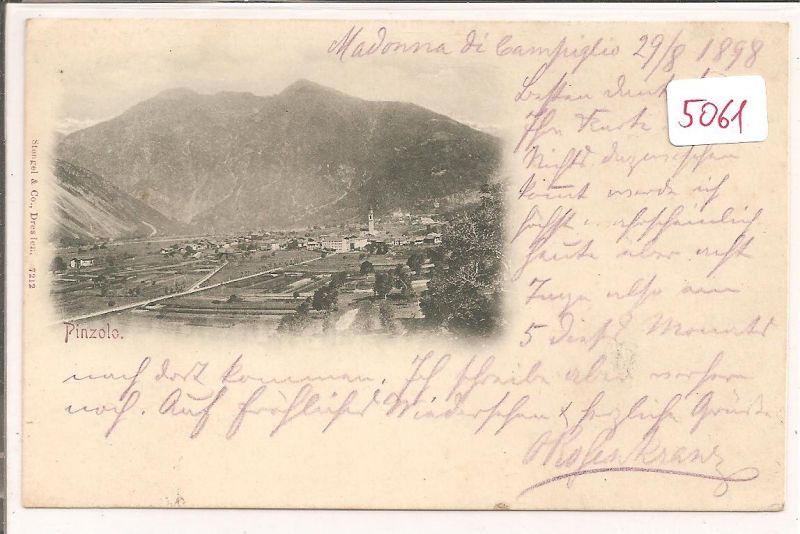 Madonna di Campiglio 29/8 1898
Besten Dank
Ihre Karte
Nichts dazwischen
kommt werde ich
höchst wahrscheinlich
heute über acht
Tage also am
5 dieses Monats
nach dort kommen. Ich schreibe aber vorher
noch. Auf fröhliches Wiedersehen & herzliche Grüße
5061
Pinzolo.
Stengel & Co., Dresden. 7212